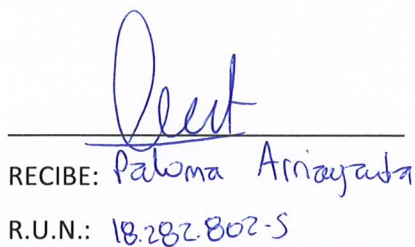 RECIBE: Paloma Arriagada
R.U.N.: 18.282.802-5